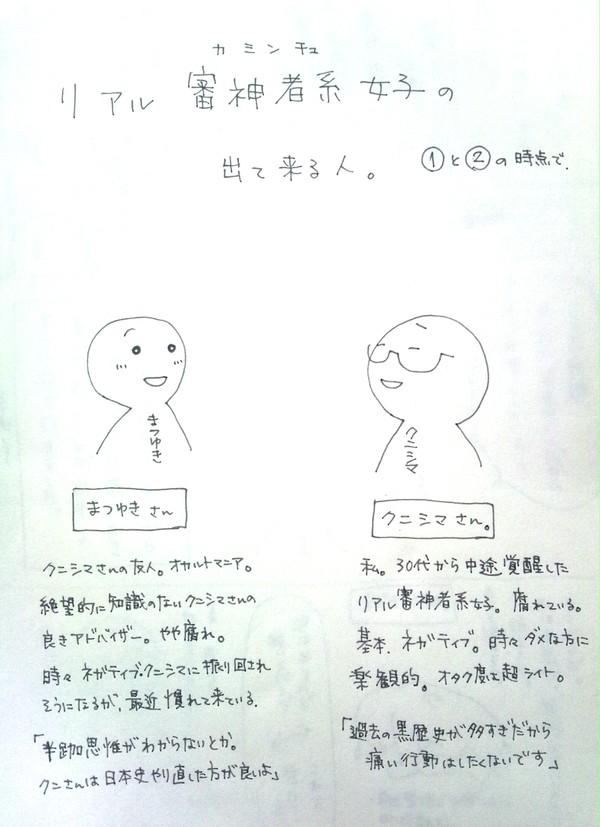 カミンチュ
リアル 審神者系女子の
出て来る人。 ①と②の時点で.
まつゆき
まつゆき さん
クニシマさんの友人。オカルトマニア。
絶望的に知識のないクニシマさんの
良きアドバイザー。やや腐れ。
時々 ネガティブ・クニシマに振り回され
そうになるが、最近 慣れて来ている.
「半跏思惟がわからないとか。
クニさんは日本史やり直した方が良いよ」
クニシマ
クニシマ さん。
私。30代から中途覚醒した
リアル審神者系女子。腐れている。
基本、ネガティブ。時々 ダメな方に
楽観的。オタク度は超ライト。
「過去の黒歴史が多すぎだから
痛い行動はしたくないです」